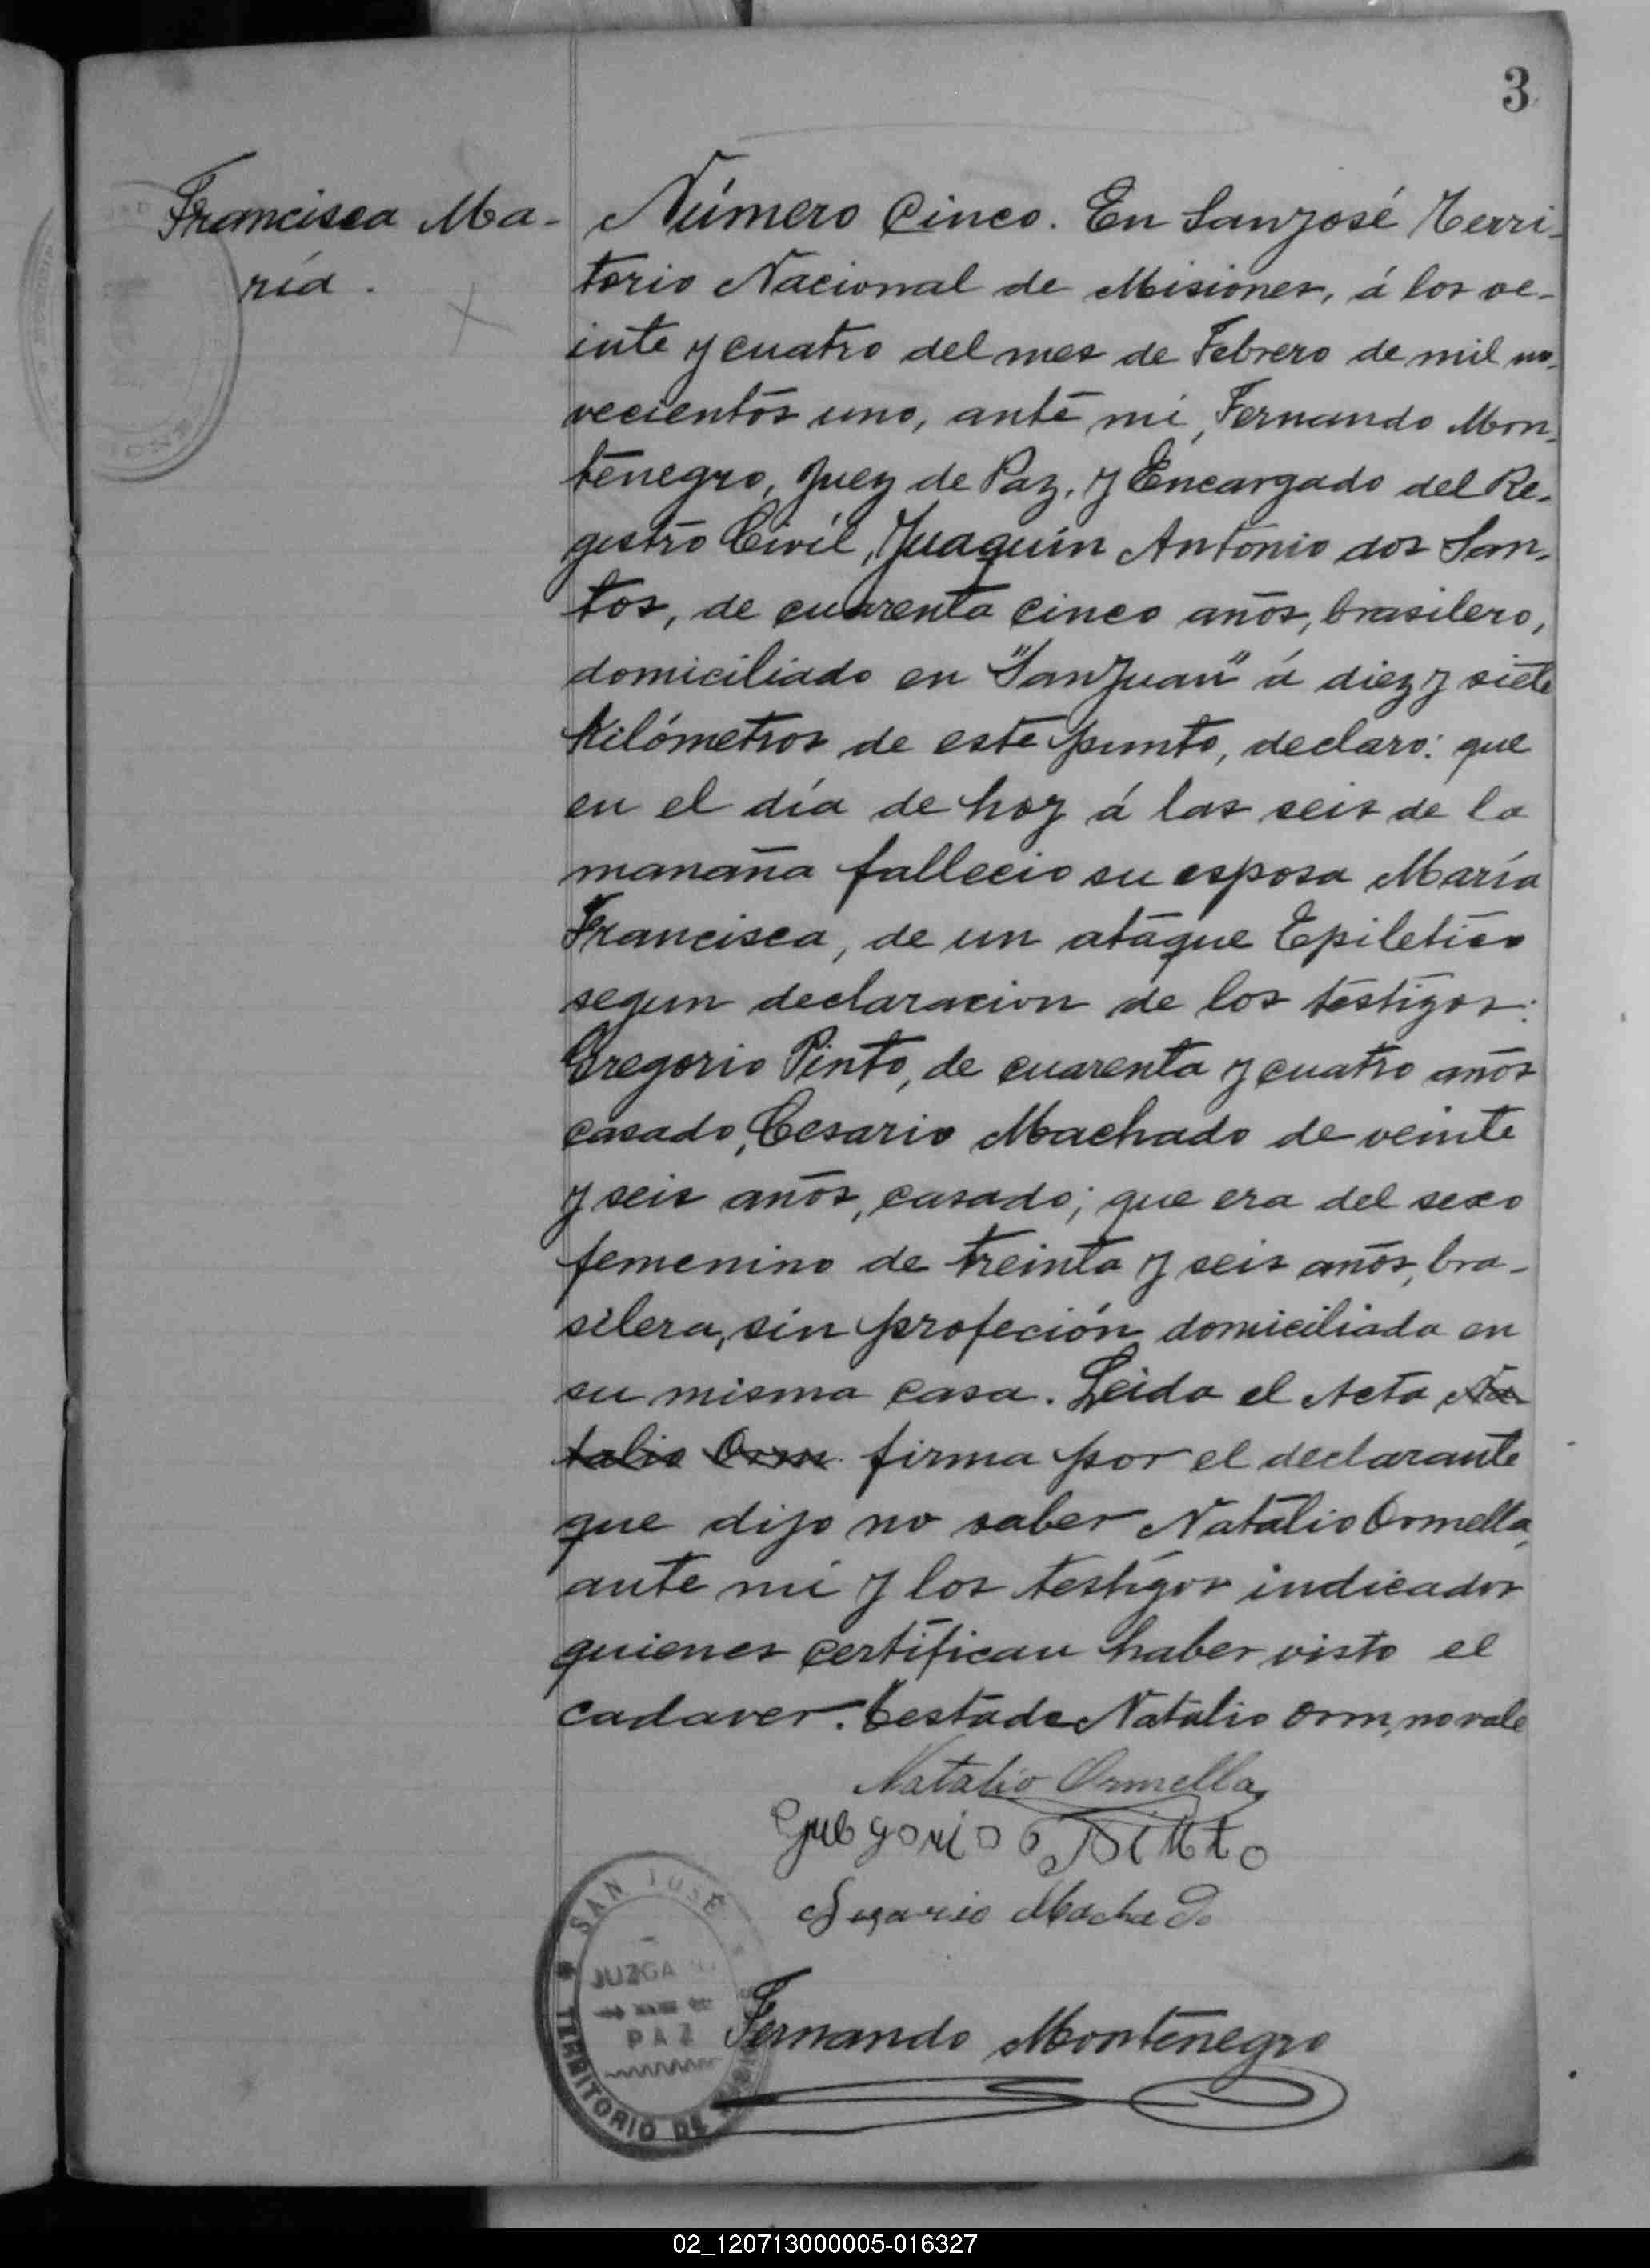 3
Francisca Ma-
ría.
Número Cinco. En San José Terri-
torio Nacional de Misiones, á los ve-
inte y cuatro del mes de Febrero de mil no-
vecientos uno, ante mi, Fernando Mon-
tenegro, Juez de Paz, y Encargado del Re-
gistro Civíl, Juaquín Antonio dos San-
tos, de cuarenta cinco años, brasilero,
domiciliado en "San Juan" á diez y siete
Kilómetros de este punto, declaro: que
en el día de hoy á las seis de la
manaña fallecio su esposa María
Francisca, de un ataque Epiletico
segun declaracion de los testigos:
Gregorio Pinto, de cuarenta y cuatro años
casado, Cesario Machado de veinte
y seis años, casado; que era del sexo
femenino de treinta y seis años, bra-
silera, sin profeción, domiciliada en
su misma casa. Leida el Acta Na-
talio Orm. firma por el declarante
que dijo no saber Natalio Ormella,
ante mi y los testigos indicados
quienes certifican haber visto el
cadaver. Testado Natalio Orm, no vale
Natalio Ormella
Gregorio Pinto
Machado
Fernando Montenegro
SAN JOSÉ
JUZGA
PAZ
TERRITORIO DE
02_120713000005-016327